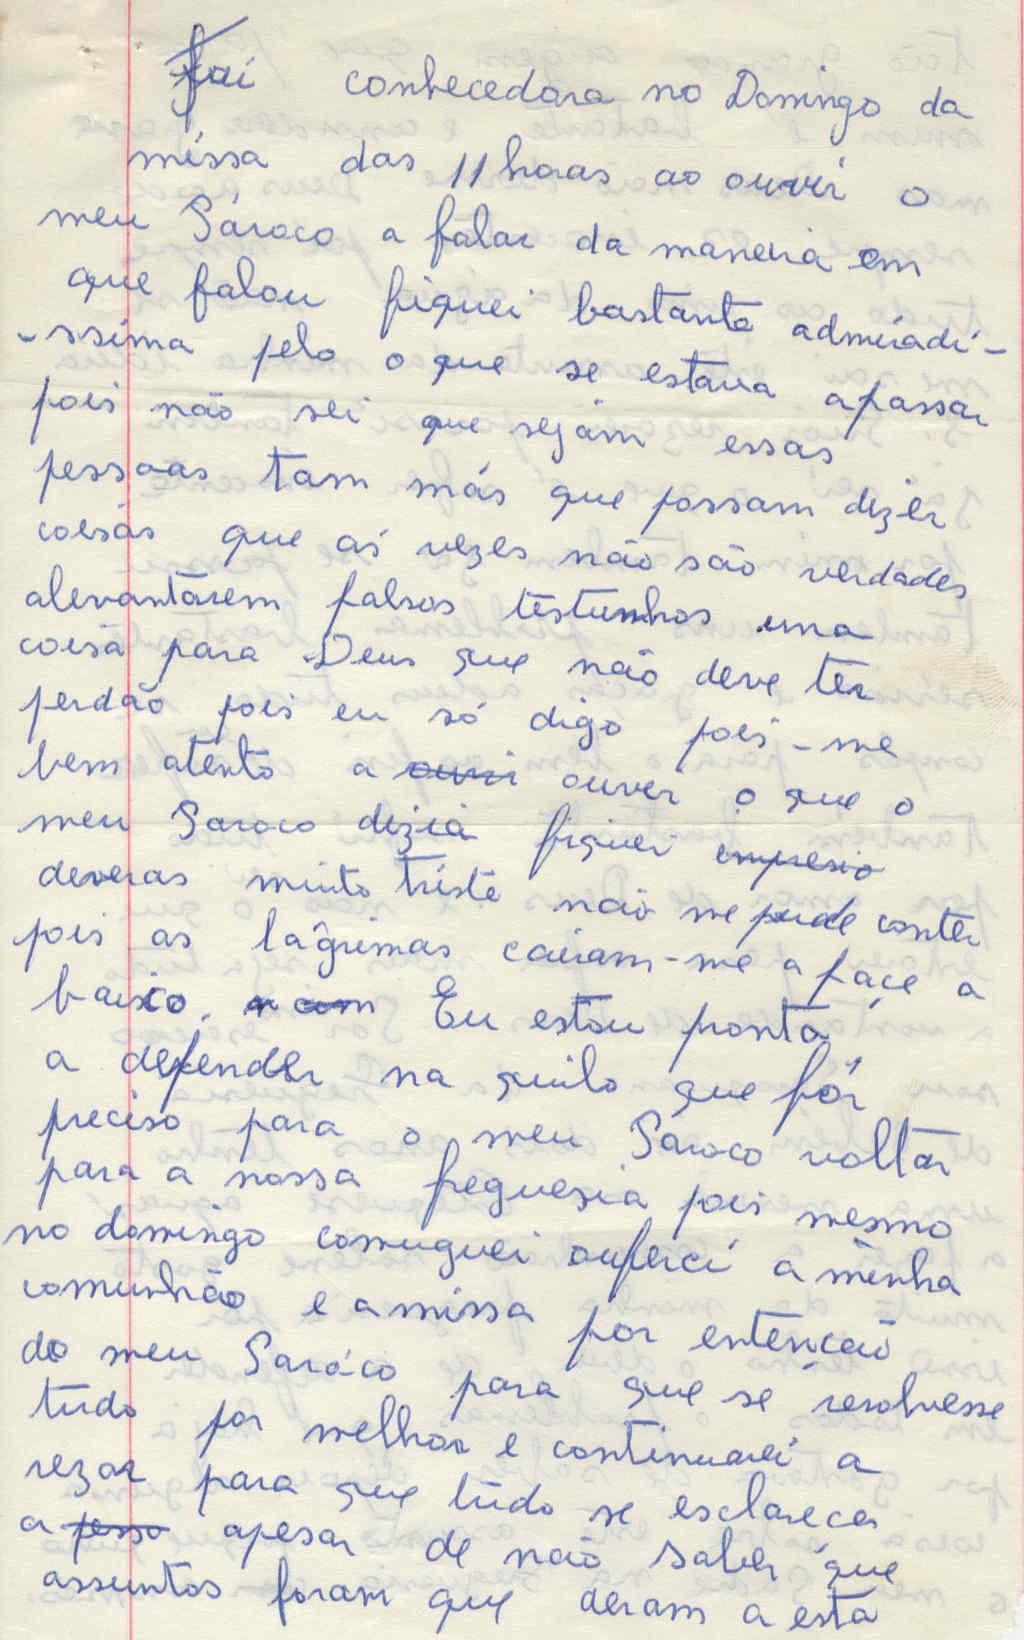 Fui conhecedora no Domingo da
missa das 11 horas ao ouvir o
meu Pároco a falar da maneira em
que falou fiquei bastante admiradi-
-ssima pelo o que se estava apassar
pois não sei que sejam essas
pessoas tam más que possam dizer
coisas que ás vezes não são verdades
alevantarem falsos testunhos uma
coisa para Deus que não deve ter
perdão pois eu só digo pois-me
bem atento a ouvir ouver o que o
meu Paroco dizia fiquei impresio
deveras muito triste não me pude conter
pois as lágrimas cairam-me a face a
baixo. Eu estou pronta
a defender na quilo que fôr
preciso para o meu Paroco voltar
para a nossa freguesia pois mesmo
no domingo comuguei ouferci a minha
comunhão e a missa por entencão
do meu Paróco para que se resolvesse
tudo por melhor e continuarei a
rezar para que tudo se esclarecer
a pesso apesar de não saber que
assuntos foram que deram a esta